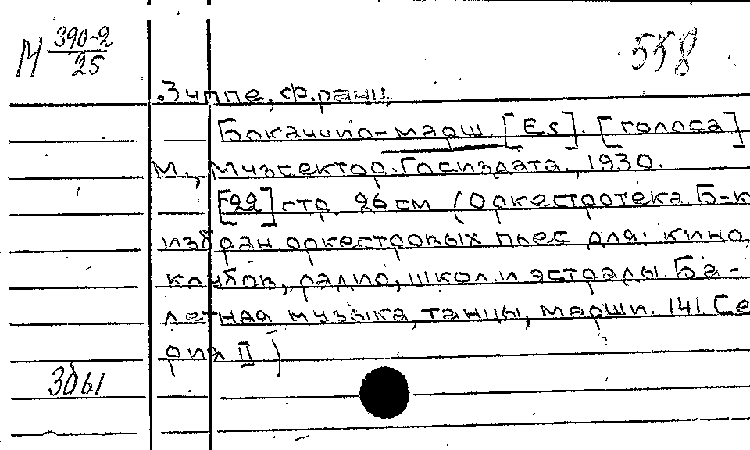 М 390-2
25
558
Зуппе, Франц.
Бокаччио-марш [Es]. [голоса]
М., Музсектор Госиздата, 1930.
[22] стр. 26 см (Оркестротека Б-к
избран оркестровых пьес для: кино,
клубов, радио, школ и эстрады. Ба-
летная музыка, танцы, марши. 141. Се
рия II)